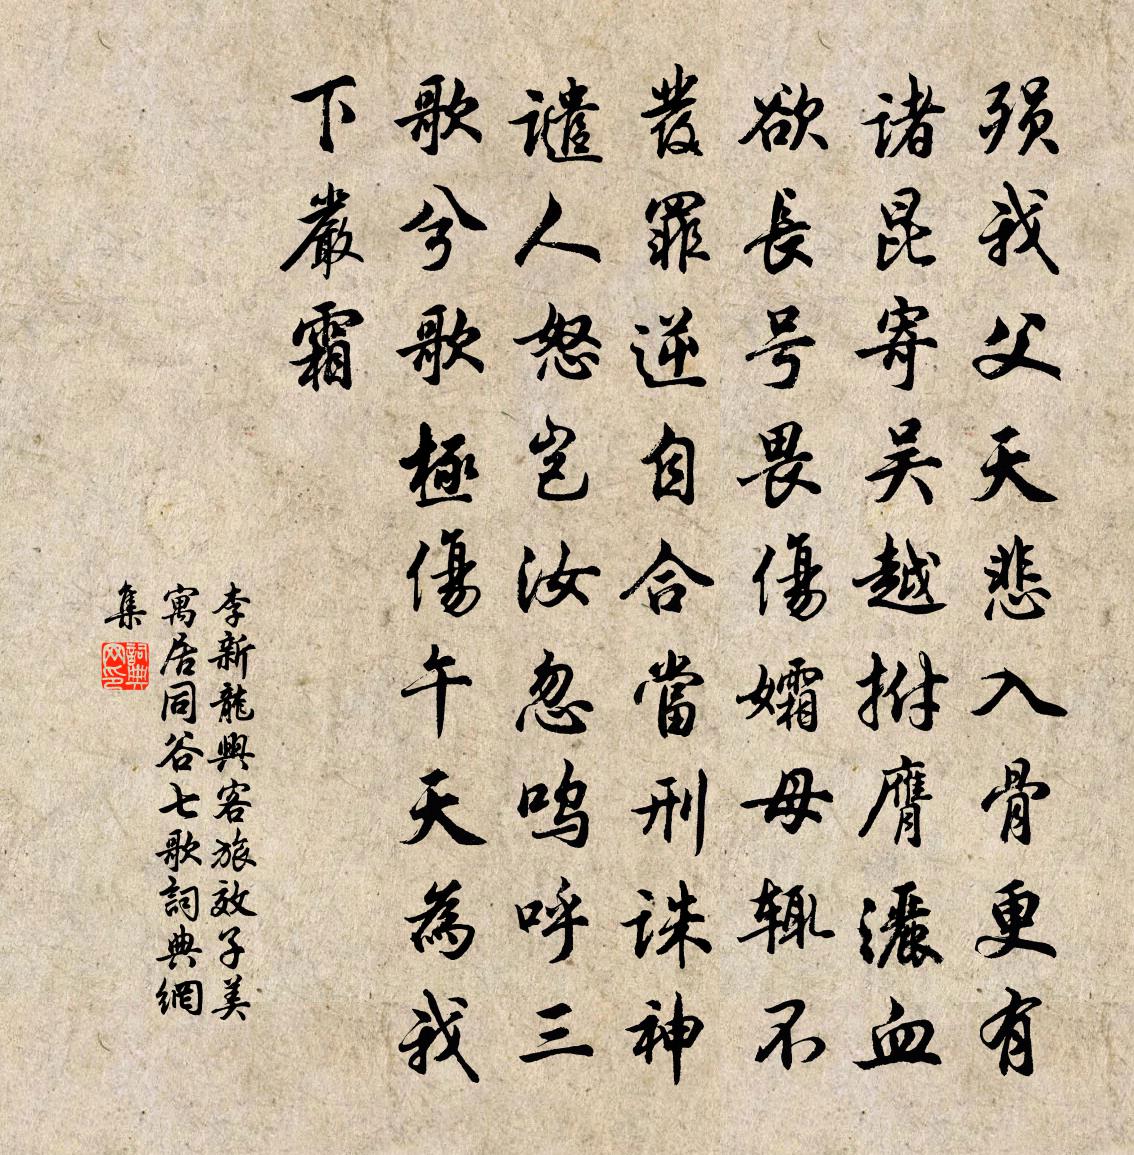 殒我父天悲入骨更有
诸昆寄吴越拊膺灑血
欲長号畏傷孀母辄不
發罪逆自合當刑诛神
譴人怒岂汝忽呜呼三
歌兮歌極傷午天為我
下嚴霜
李新龍興客旅效子美
寓居同谷七歌詞典網
集
詞典网印